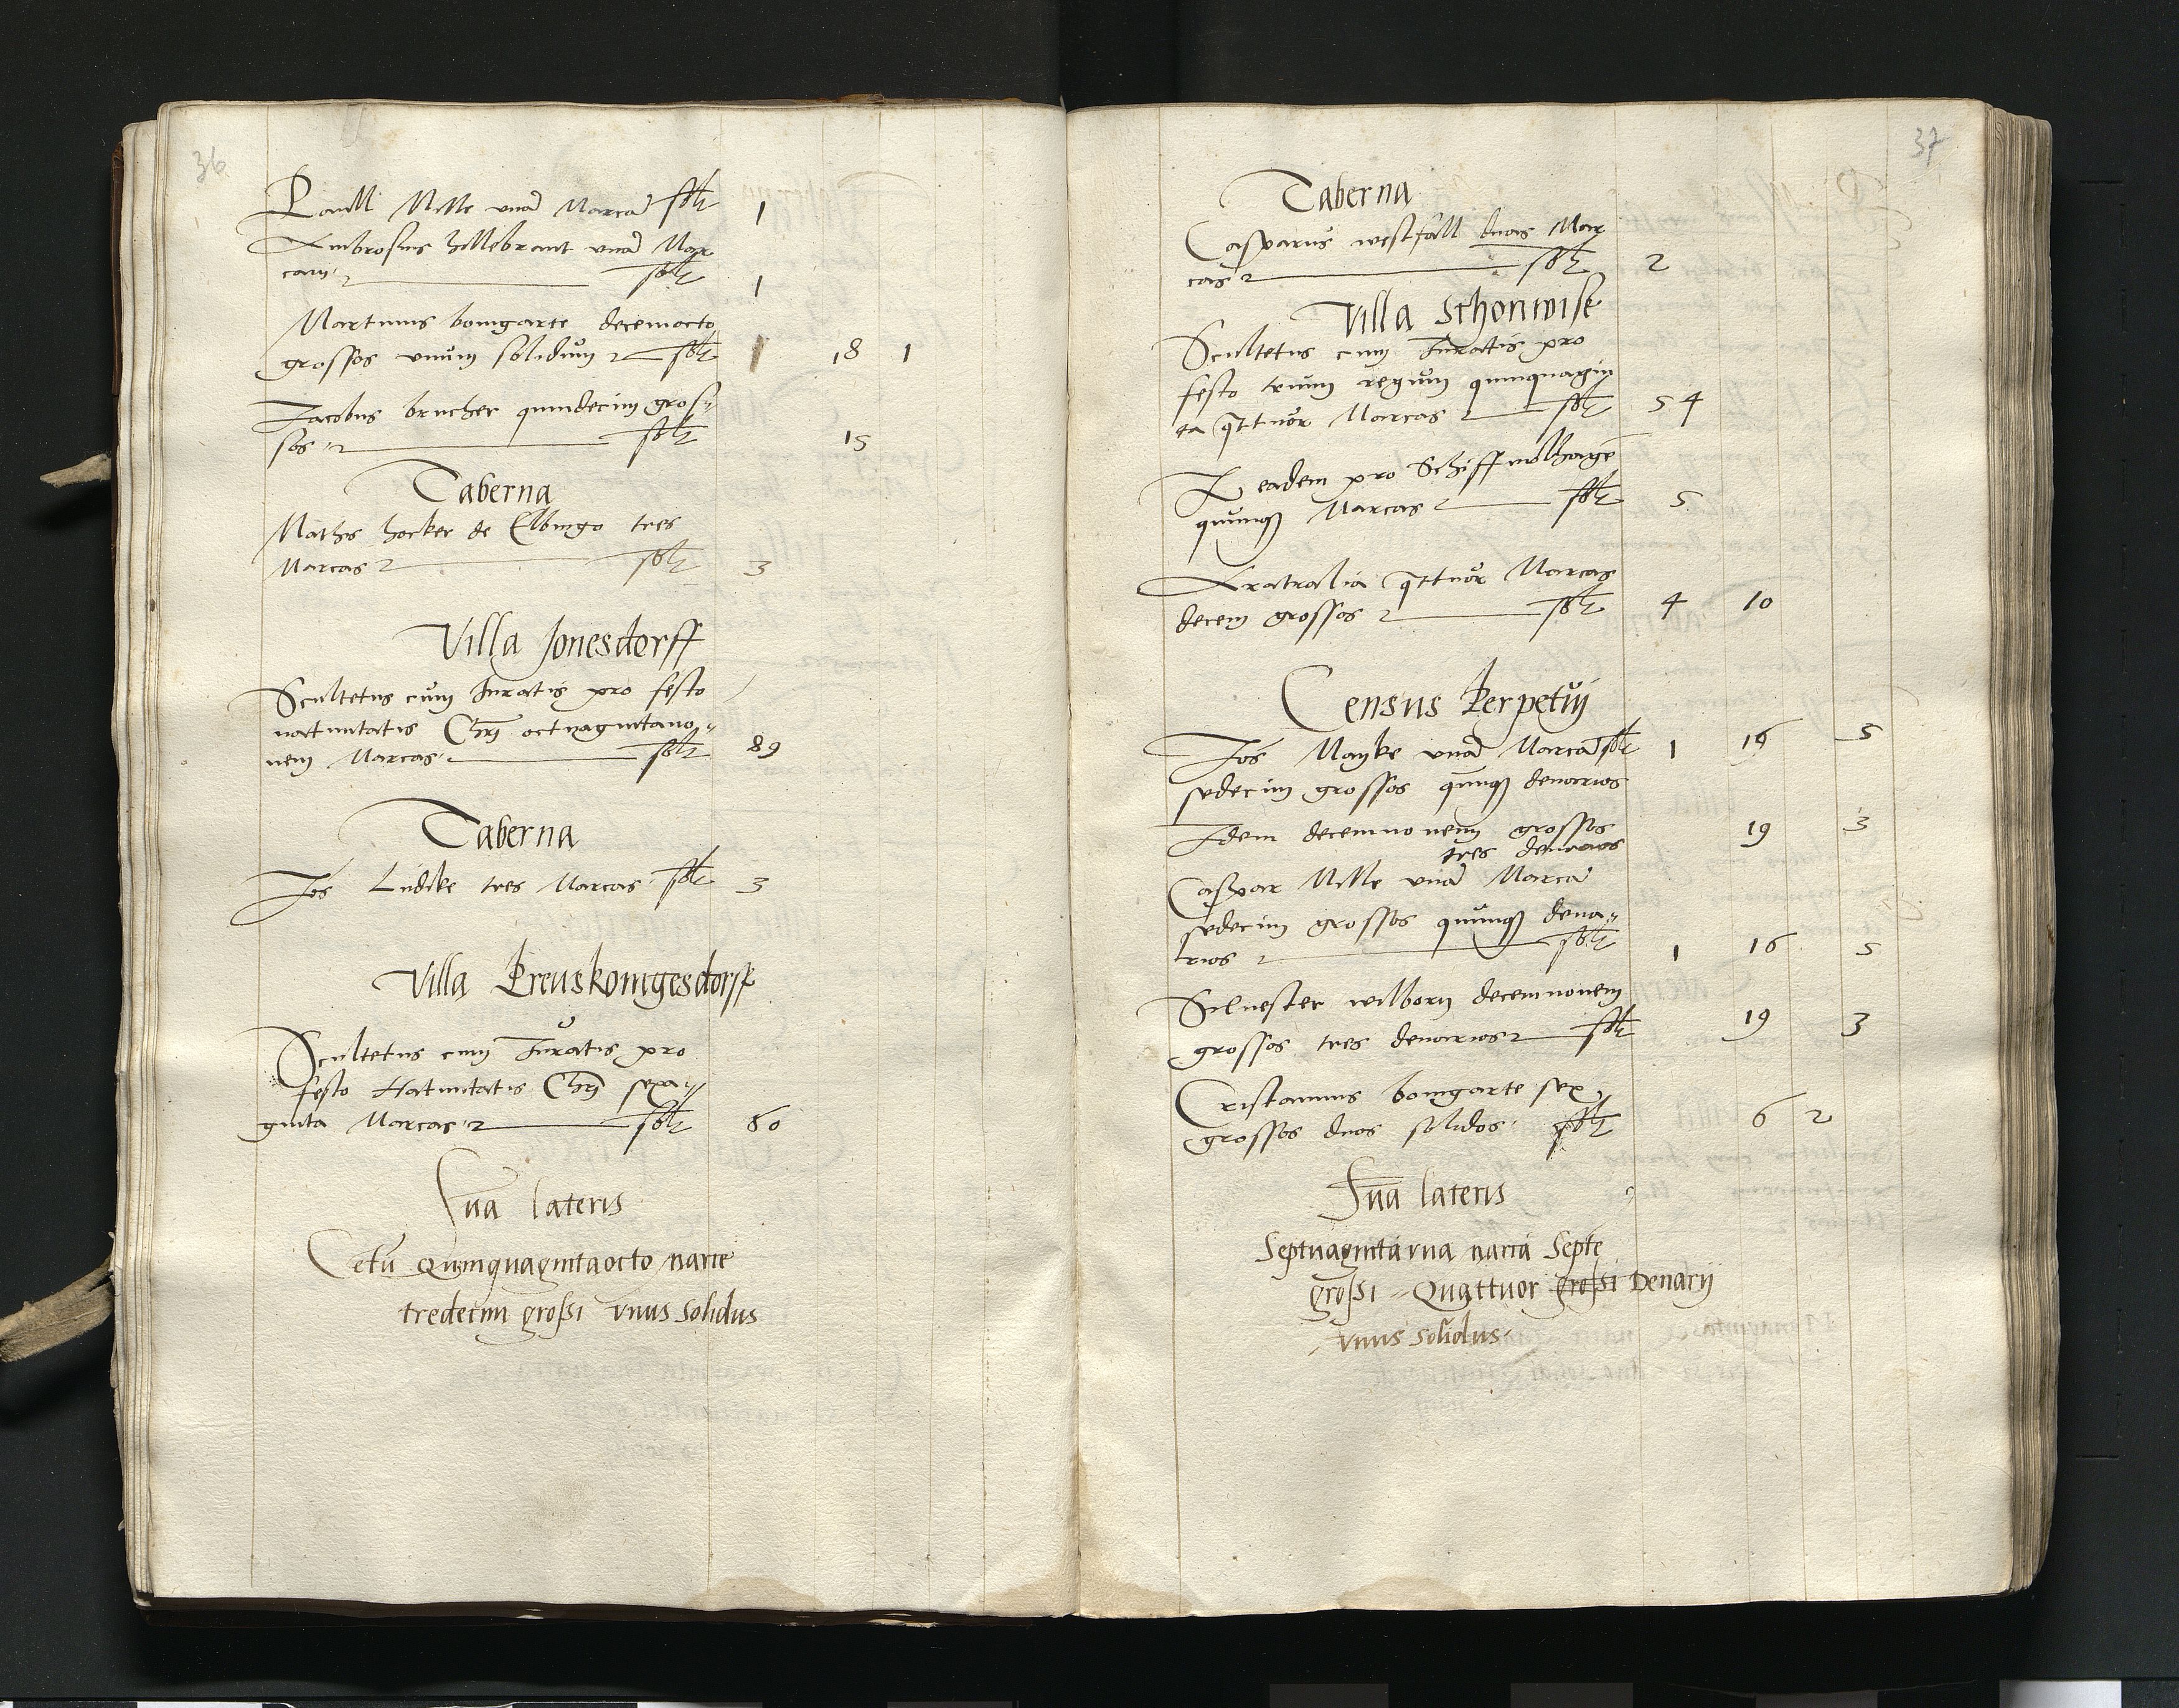 36
Paull Nille vnā Marcā sol 1
Ambrosius hillebrant vnā Mar
cam sol 1
Martinus bomgarte decemocto
grossos vnum solidum sol 18 1
Jacobus brucher quindecim gros
sos sol 15
Taberna
Mathis hocker de Elbingo tres
Marcas sol 3
Villa Jonesdorff
Scultetus cum Juratis pro festo
natiuitatis Chri octuagintano
nem Marcas sol 89
Taberna
Jos Lüdike tres Marcas sol 3
Villa Preuskonigesdorff
Scultetus cum Juratis pro
festo Natiuitatis Chri sexa
ginta Marcas sol 60
Sūa lateris
Cētū Quinquagintaocto marce
tredecim grossi vnus solidus
37
Taberna
Casparus westfall duas Mar
cas sol 2
Villa Schonwise
Scultetus cum Juratis pro
festo trium regum quinquagin
ta qttuor Marcas sol 54
eadem pro Schiff
quinq Marcas sol 5
qttuor Marcas
decem grossos sol 4 10
Census Perpetuj
Jos Manke vnā Marcā sol 1 16 5
sedecim grossos quinq denarios
Idem decemnouem grossos 19 3
tres denarios
Caspar Nille vnā Marcā
sedecim grossos quinq dena
rios sol 1 16 5
Siluester wilborn decemnouem
grossos tres denarios sol 19 3
Cristannus bomgarte sex
grossos duos solidos sol 6 2
Sūa lateris
Septuaginta vna marca Septē
grossi Quattuor grossi Denarij
vnus solidus